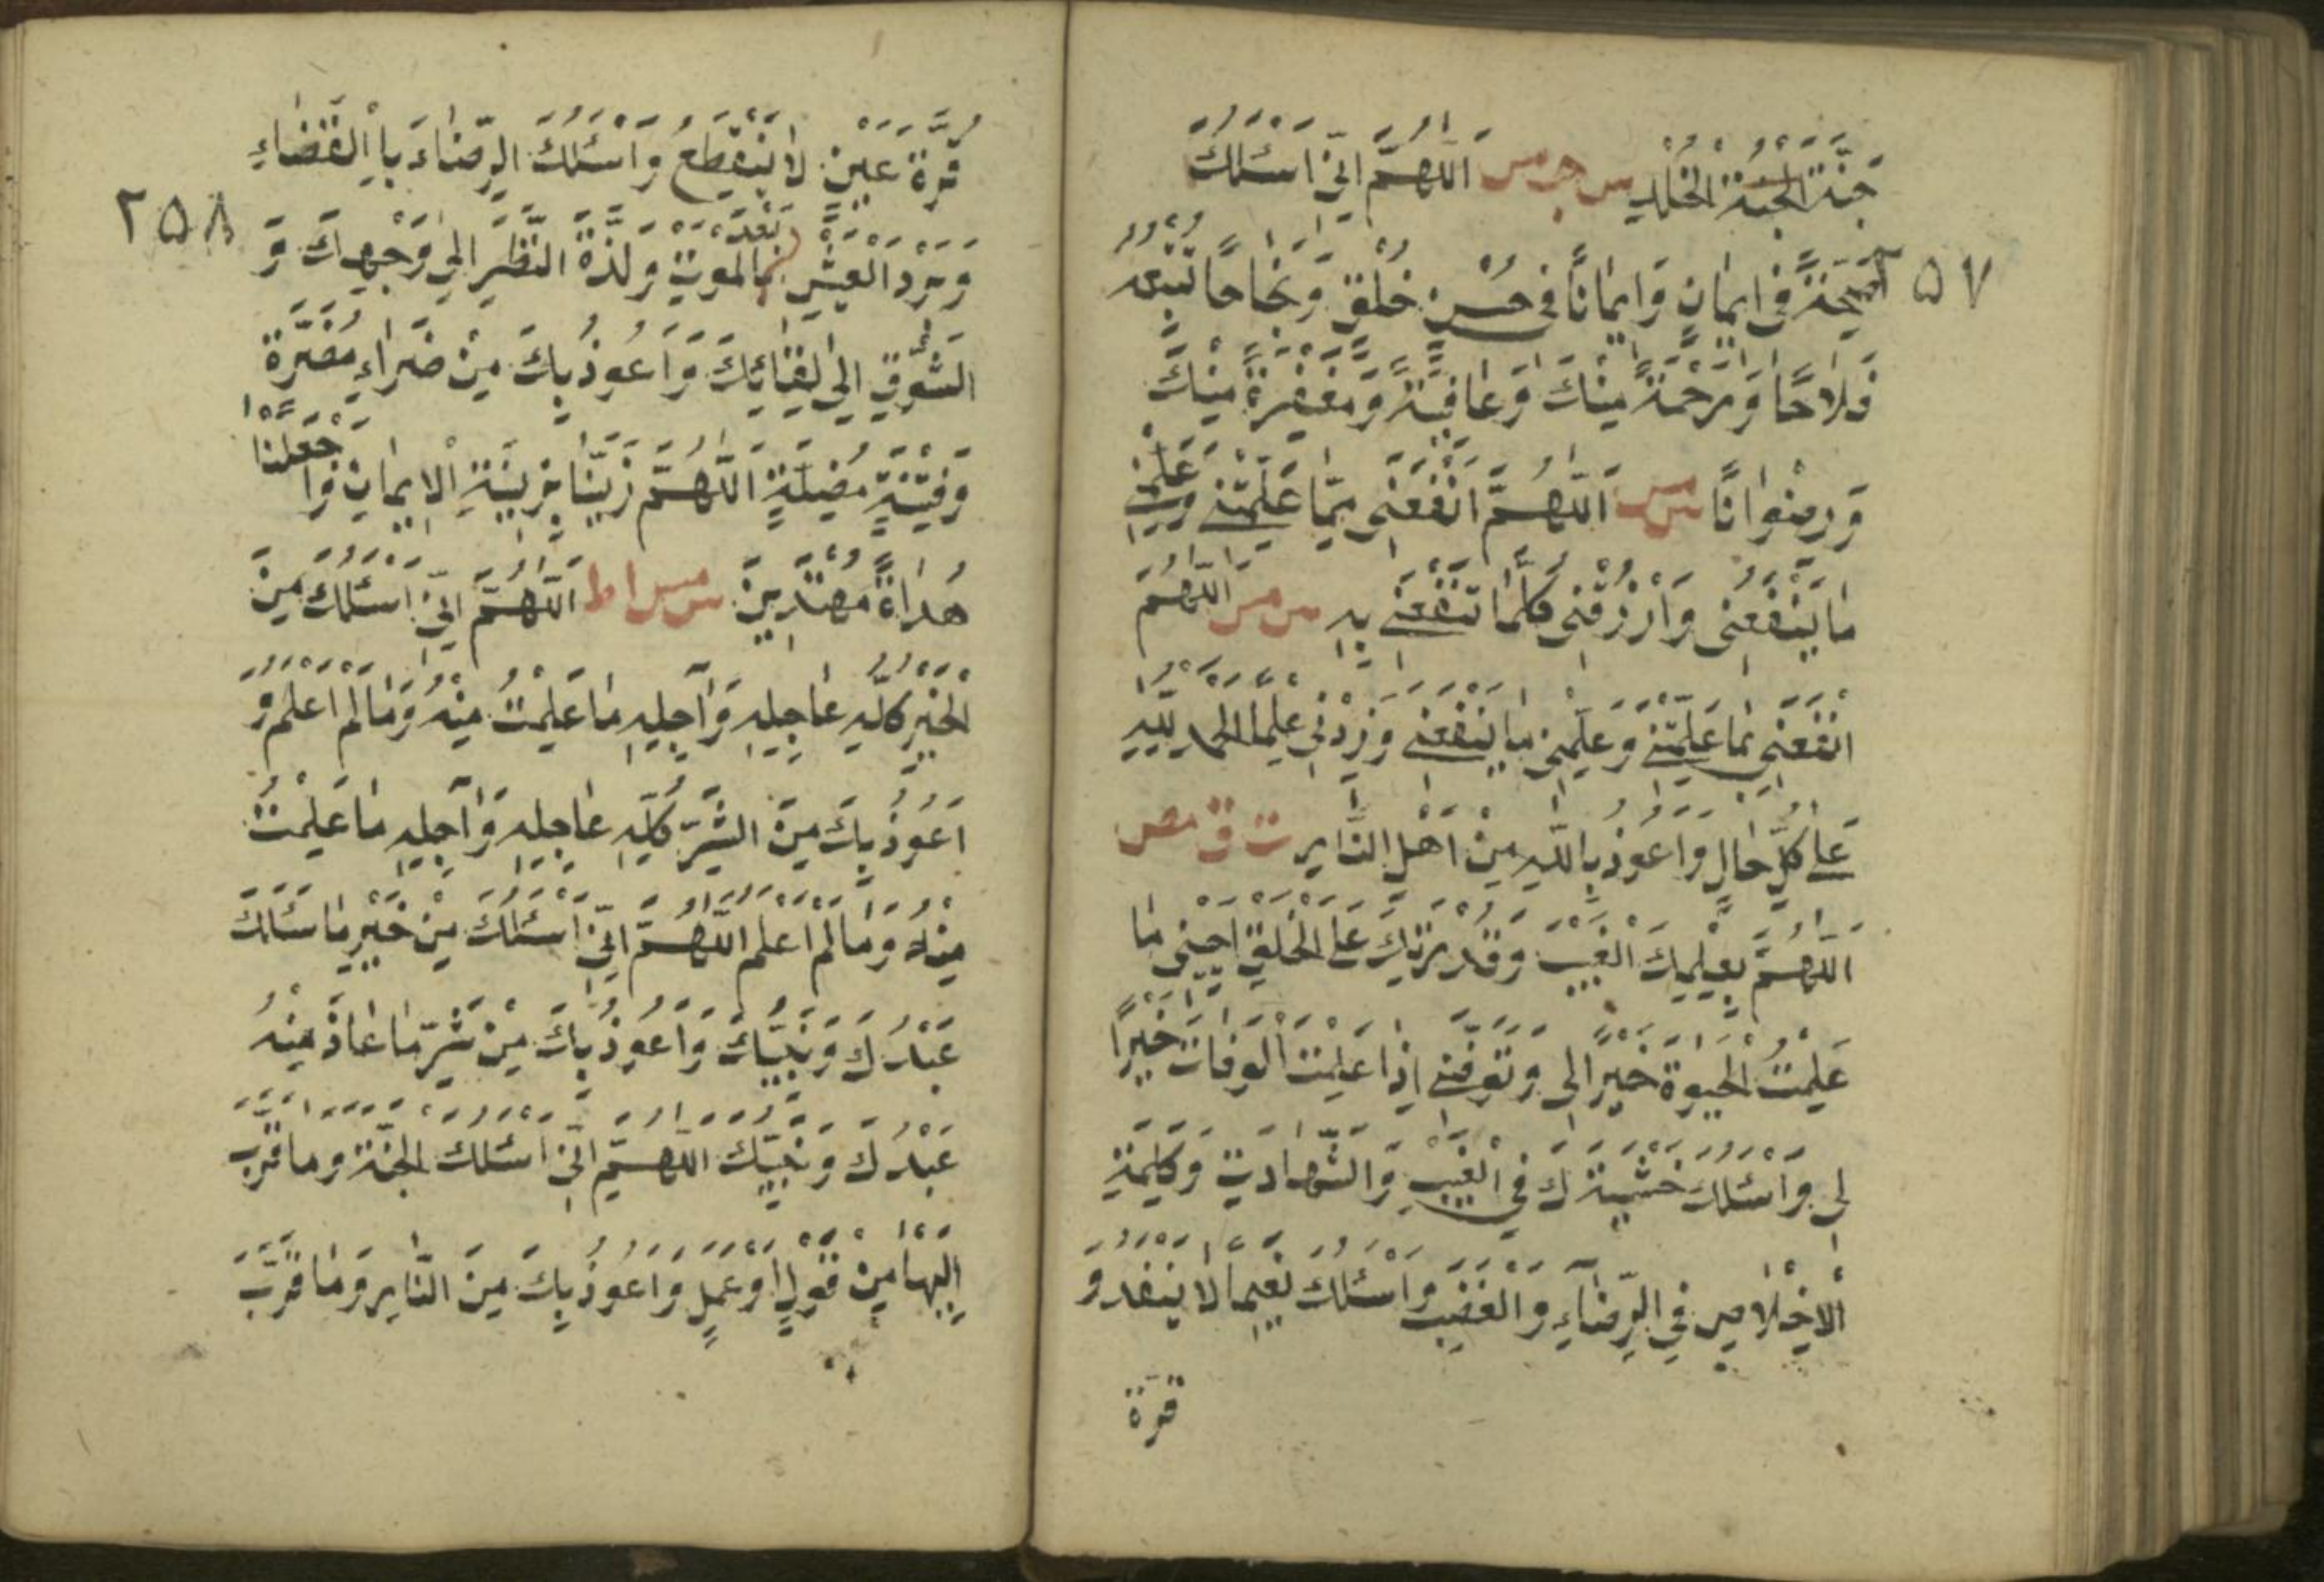 جَنَّةِ الجنة الْخُلْدِ س حب مس اَللّٰهُمَّ اِنِّيْ اَسْئَلُكَ
٢٥٧
صِحَّةً فِيْ اِيْمَانٍ وَاِيْمَانًا فِيْ حُسْنِ خُلُقٍ وَّنَجَاحًا تُتْبِعُهُ
فَلَاحًا وَّرَحْمَةً مِنْكَ وَعَافِيَةً وَّمَغْفِرَةً مِنْكَ
وَرِضْوَانًا س مس اَللّٰهُمَّ انْفَعْنِيْ بِمَا عَلَّمْتَنِيْ وَعَلِّمْنِيْ
مَا يَنْفَعُنِيْ وَارْزُقْنِيْ عِلْمًا تَنْفَعُنِيْ بِهِ س مس اَللّٰهُمَّ
انْفَعْنِيْ بِمَا عَلَّمْتَنِيْ وَعَلِّمْنِيْ مَا يَنْفَعُنِيْ وَزِدْنِيْ عِلْمًا اَلْحَمْدُ لِلّٰهِ
عَلٰى كُلِّ حَالٍ وَّاَعُوْذُ بِاللّٰهِ مِنْ اَهْلِ النَّارِ ت ق مص
اَللّٰهُمَّ بِعِلْمِكَ الْغَيْبَ وَقُدْرَتِكَ عَلَى الْخَلْقِ اَحْيِنِيْ مَا
عَلِمْتَ الْحَيٰوةَ خَيْرًا لِيْ وَتَوَفَّنِيْ اِذَا عَلِمْتَ الْوَفَاتَ خَيْرًا
لِيْ وَاَسْئَلُكَ خَشْيَتَكَ فِي الْغَيْبِ وَالشَّهَادَتِ وَكَلِمَةِ
الْاِخْلَاصِ فِي الرِّضَاءِ وَالْغَضَبِ وَاَسْئَلُكَ نَعِيْمًا لَا يَنْفَدُ وَ
قرة
قُرَّةَ عَيْنٍ لَا يَنْقَطِعُ وَاَسْئَلُكَ الرِّضَاءَ بِالْقَضَاءِ
٢٥٨
وَبَرْدَ الْعَيْشِ بَعْدَ الْمَوْتِ وَلَذَّةَ النَّظَرِ اِلٰى وَجْهِكَ وَ
الشَّوْقِ اِلٰى لِقَائِكَ وَاَعُوْذُ بِكَ مِنْ ضَرَّاءِ مُضِرَّةٍ
وَفِتْنَةٍ مُضِلَّةٍ اَللّٰهُمَّ زَيِّنَّا بِزِيْنَةِ الْاِيْمَانِ وَاجْعَلْنَا
هُدَاةً مُهْتَدِيْنَ س مس ا ط اَللّٰهُمَّ اِنِّيْ اَسْئَلُكَ مِنَ
الْخَيْرِ كُلِّهٖ عَاجِلِهٖ وَاٰجِلِهٖ مَا عَلِمْتُ مِنْهُ وَمَا لَمْ اَعْلَمْ وَ
اَعُوْذُ بِكَ مِنَ الشَّرِّ كُلِّهٖ عَاجِلِهٖ وَاٰجِلِهٖ مَا عَلِمْتُ
مِنْهُ وَمَا لَمْ اَعْلَمْ اَللّٰهُمَّ اِنِّيْ اَسْئَلُكَ مِنْ خَيْرِ مَا سَئَلَكَ
عَبْدُكَ وَنَبِيُّكَ وَاَعُوْذُ بِكَ مِنْ شَرِّ مَا عَاذَ مِنْهُ
عَبْدُكَ وَنَبِيُّكَ اَللّٰهُمَّ اِنِّيْ اَسْئَلُكَ الْجَنَّةَ وَمَا قَرَّبَ
اِلَيْهَا مِنْ قَوْلٍ اَوْ عَمَلٍ وَاَعُوْذُ بِكَ مِنَ النَّارِ وَمَا قَرَّبَ